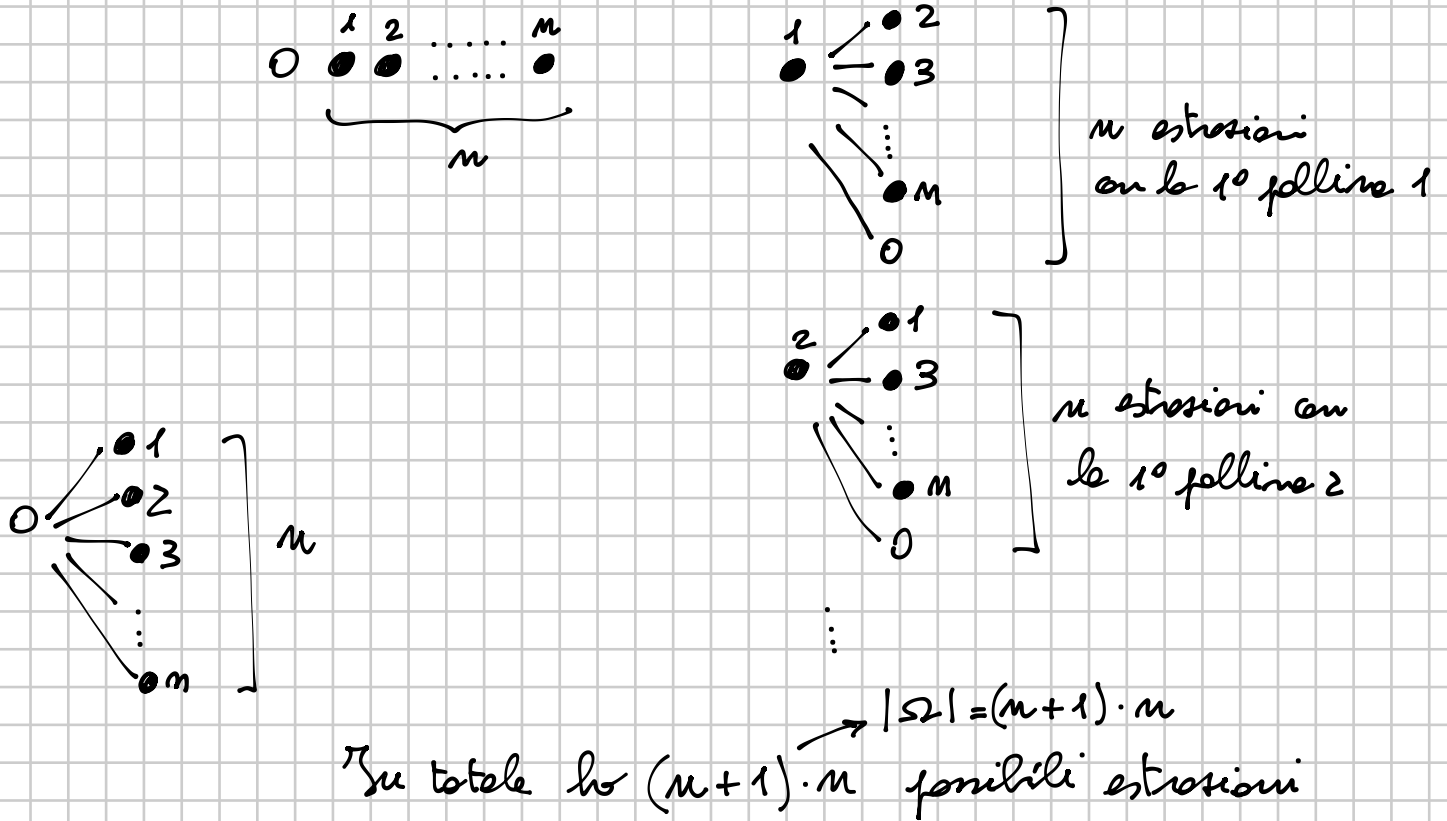 1 2 ..... n
O ● ● ..... ●
n
1 2
3
⋮
n
O
n estrazioni
con la 1º pallina 1
2 1
3
⋮
n
O
n estrazioni con
la 1º pallina 2
⋮
O 1
2
3
⋮
n
n
|Ω| = (n+1)·n
In totale ho (n+1)·n possibili estrazioni